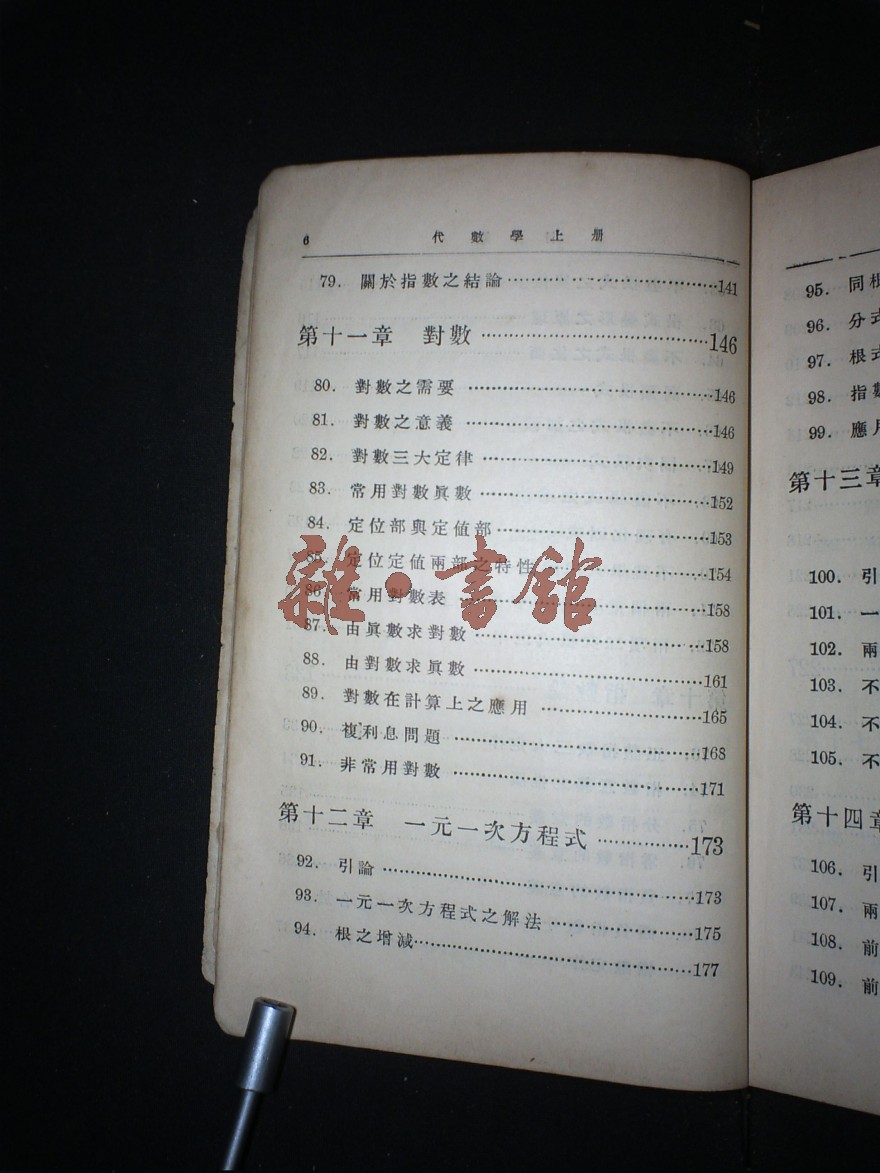 6 代數學上册
79. 關於指數之結論 141
第十一章 對數 146
80. 對數之需要 146
81. 對數之意義 146
82. 對數三大定律 149
83. 常用對數眞數 152
84. 定位部與定値部 153
85. 定位定値兩部之特性 154
86. 常用對數表 158
87. 由眞數求對數 158
88. 由對數求眞數 161
89. 對數在計算上之應用 165
90. 複利息問題 168
91. 非常用對數 171
第十二章 一元一次方程式 173
92. 引論 173
93. 一元一次方程式之解法 175
94. 根之增減 177
雜·書館
95. 同根
96. 分式
97. 根式
98. 指數
99. 應用
第十三章
100. 引
101. 一
102. 兩
103. 不
104. 不
105. 不
第十四章
106. 引
107. 兩
108. 前
109. 前